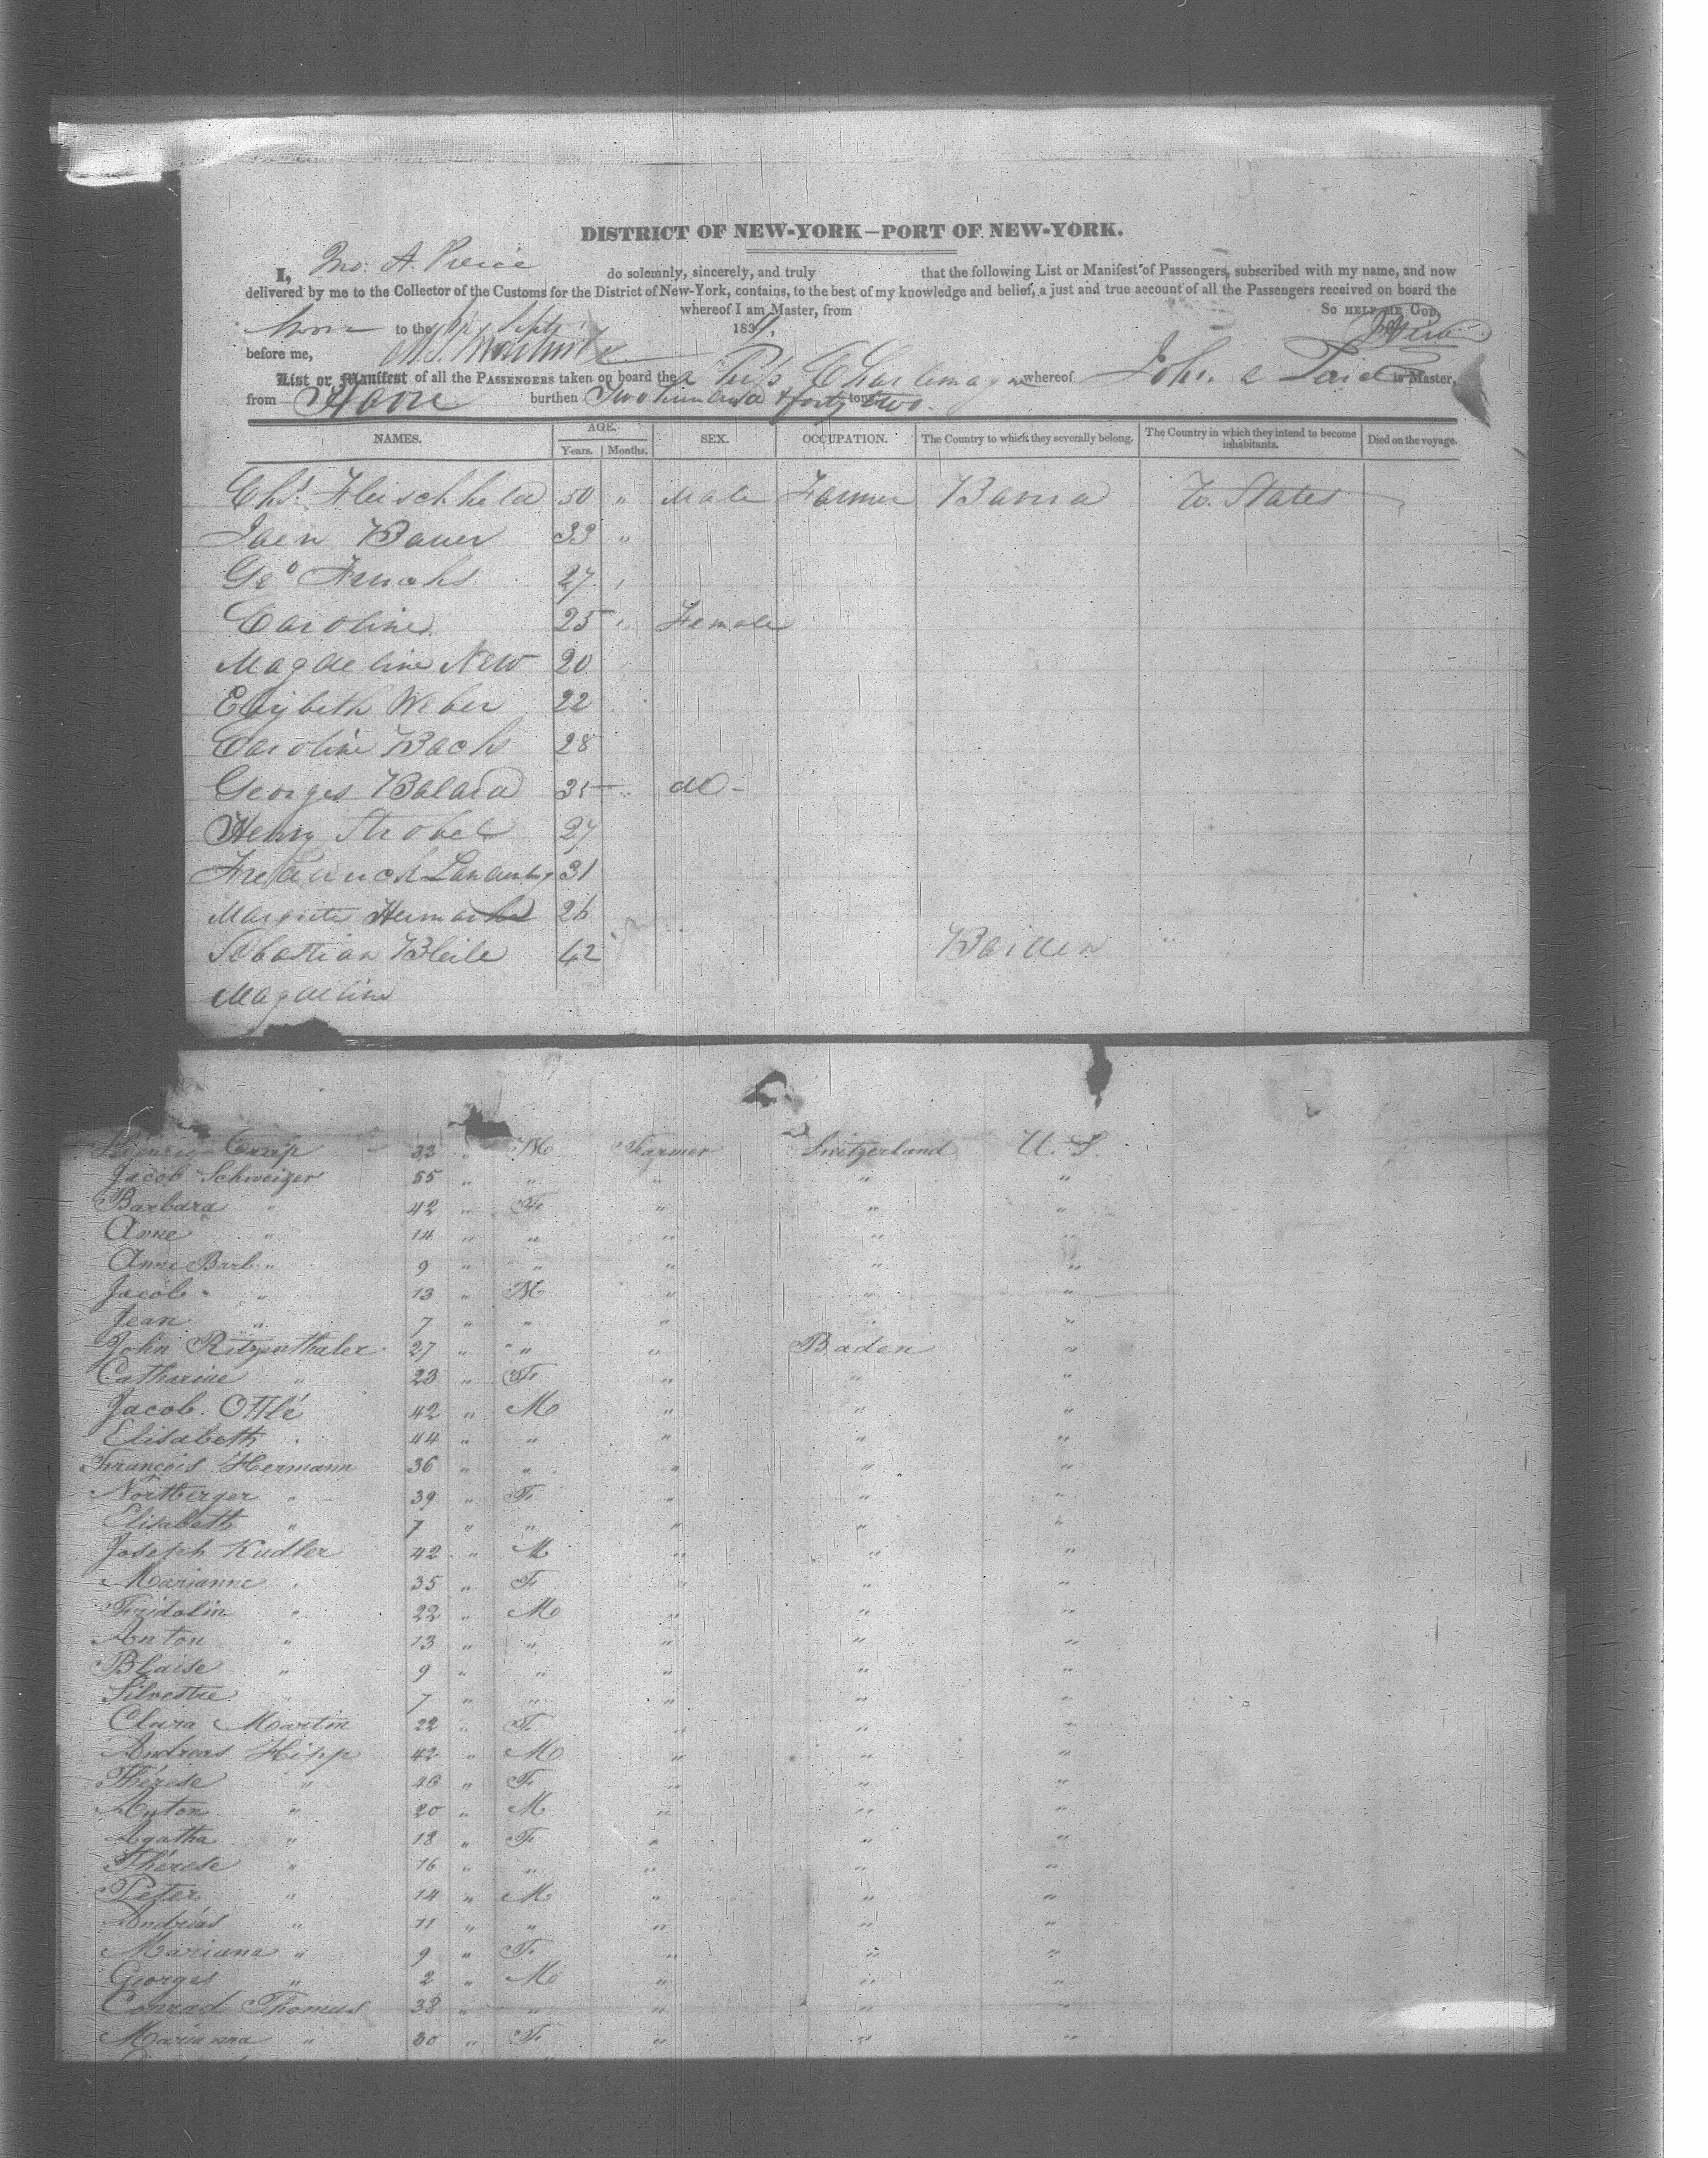 DISTRICT OF NEW-YORK—PORT OF NEW-YORK.
I, Jno. A. Peirce do solemnly, sincerely, and truly that the following List or Manifest of Passengers, subscribed with my name, and now
delivered by me to the Collector of the Customs for the District of New-York, contains, to the best of my knowledge and belief, a just and true account of all the Passengers received on board the
whereof I am Master, from So HELP ME GOD,
to the Sept 183
before me,
List or Manifest of all the PASSENGERS taken on board the Ship Charlemagne whereof John a is Master,
from Havre burthen Two hundred & forty two tons
NAMES. AGE. Years. Months. SEX. OCCUPATION. The Country to which they severally belong. The Country in which they intend to become inhabitants. Died on the voyage.
Chs. Fleischheld 50 " Male Farmer Bavria U. States
Bauer 33 "
Geo 27 "
Caroline 25 " Female
Magdeline New 20
Weber 22
Caroline Bachs 28
Georges 35 " M
Henry Strobel 27
Frederick 31
26
Sebastian Bleile 42 Baiden "
Magdeline
33 " M Farmer Switzerland U. S.
Jacob Schweizer 55 " " " " "
Barbara " 42 " F " " "
Anne " 14 " " " " "
Anne Barb. " 9 " " " " "
Jacob " 13 " M " " "
Jean " 7 " " " " "
John Ritzenthaler 27 " " " Baden "
Catharine " 23 " F " " "
Jacob Ottlé 42 " M " " "
Elisabeth " 44 " " " " "
François Hermann 36 " " " " "
Nortberger " 39 " F " " "
Elisabeth " 7 " " " " "
Joseph Kudler 42 " M " " "
Marianne " 35 " F " " "
Fridolin " 22 " M " " "
Anton " 13 " " " " "
Blaise " 9 " " " " "
Silvestre " 7 " " " " "
Clara Martin 22 " F " " "
Andreas Hipp 42 " M " " "
Thérese " 46 " F " " "
Anton " 20 " M " " "
Agatha " 18 " F " " "
Thérese " 16 " " " " "
Peter " 14 " M " " "
Andréas " 11 " " " " "
Mariana " 9 " F " " "
Georges " 2 " M " " "
Conrad Thomas 38 " " " " "
Marianna " 30 " F " " "